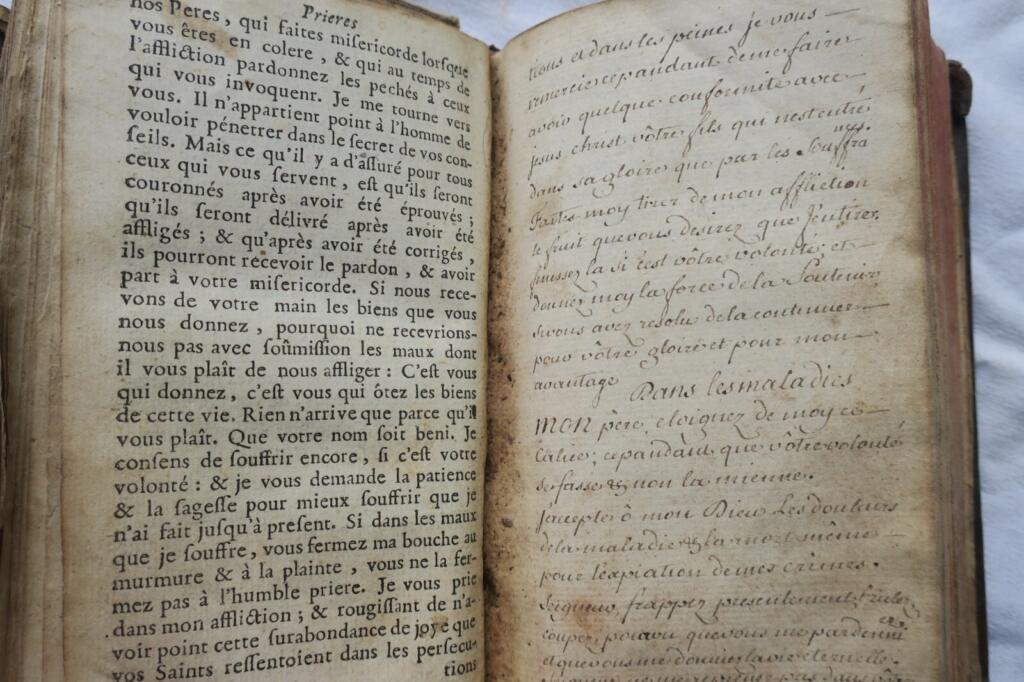 Prieres
nos Peres, qui faites miſericorde lorſque
vous êtes en colere, & qui au temps de
l'affliction pardonnez les pechés à ceux
qui vous invoquent. Je me tourne vers
vous. Il n'appartient point à l'homme de
vouloir pénetrer dans le ſecret de vos con-
ſeils. Mais ce qu'il y a d'aſſuré pour tous
ceux qui vous ſervent, eſt qu'ils ſeront
couronnés après avoir été éprouvés;
qu'ils ſeront délivré après avoir été
affligés; & qu'après avoir été corrigés,
ils pourront recevoir le pardon, & avoir
part à votre miſericorde. Si nous rece-
vons de votre main les biens que vous
nous donnez, pourquoi ne recevrions-
nous pas avec ſoûmiſſion les maux dont
il vous plaît de nous affliger: C'eſt vous
qui donnez, c'eſt vous qui ôtez les biens
de cette vie. Rien n'arrive que parce qu'il
vous plaît. Que votre nom ſoit beni. Je
conſens de ſouffrir encore, ſi c'eſt votre
volonté: & je vous demande la patience
& la ſageſſe pour mieux ſouffrir que je
n'ai fait juſqu'à preſent. Si dans les maux
que je ſouffre, vous fermez ma bouche au
murmure & à la plainte, vous ne la fer-
mez pas à l'humble priere. Je vous prie
dans mon affliction; & rougiſſant de n'a-
voir point cette ſurabondance de joye que
vos Saints reſſentoient dans les perſecu-
tions
tions et dans les peines je vous
remercie cepandant de me faire
avoir quelque conformité avec
jesus christ vôtre fils qui nest entré
dans sa gloire que par les Souffra
nces.
Faites moy tirer de mon affliction
le fruit que vous desirez que J'en tire.
finissez la si cest vôtre volonté et
donnez moy la force de la Soutenir
si vous avez resolu de la continuer
pour vôtre gloire et pour mon
avantage
Dans les maladies
MON père, eloignez de moy ce
Calice; cepandant que vôtre volonté
se fasse & non la mienne.
J'accepte ô mon Dieu Les douleurs
de la maladie & la mort même
pour l'expiation de mes crimes.
Seigneur, frappez presentement, brulez
coupez, pourvu que vous me pardonni
ez,
et que vous me donniez la vie eternelle.